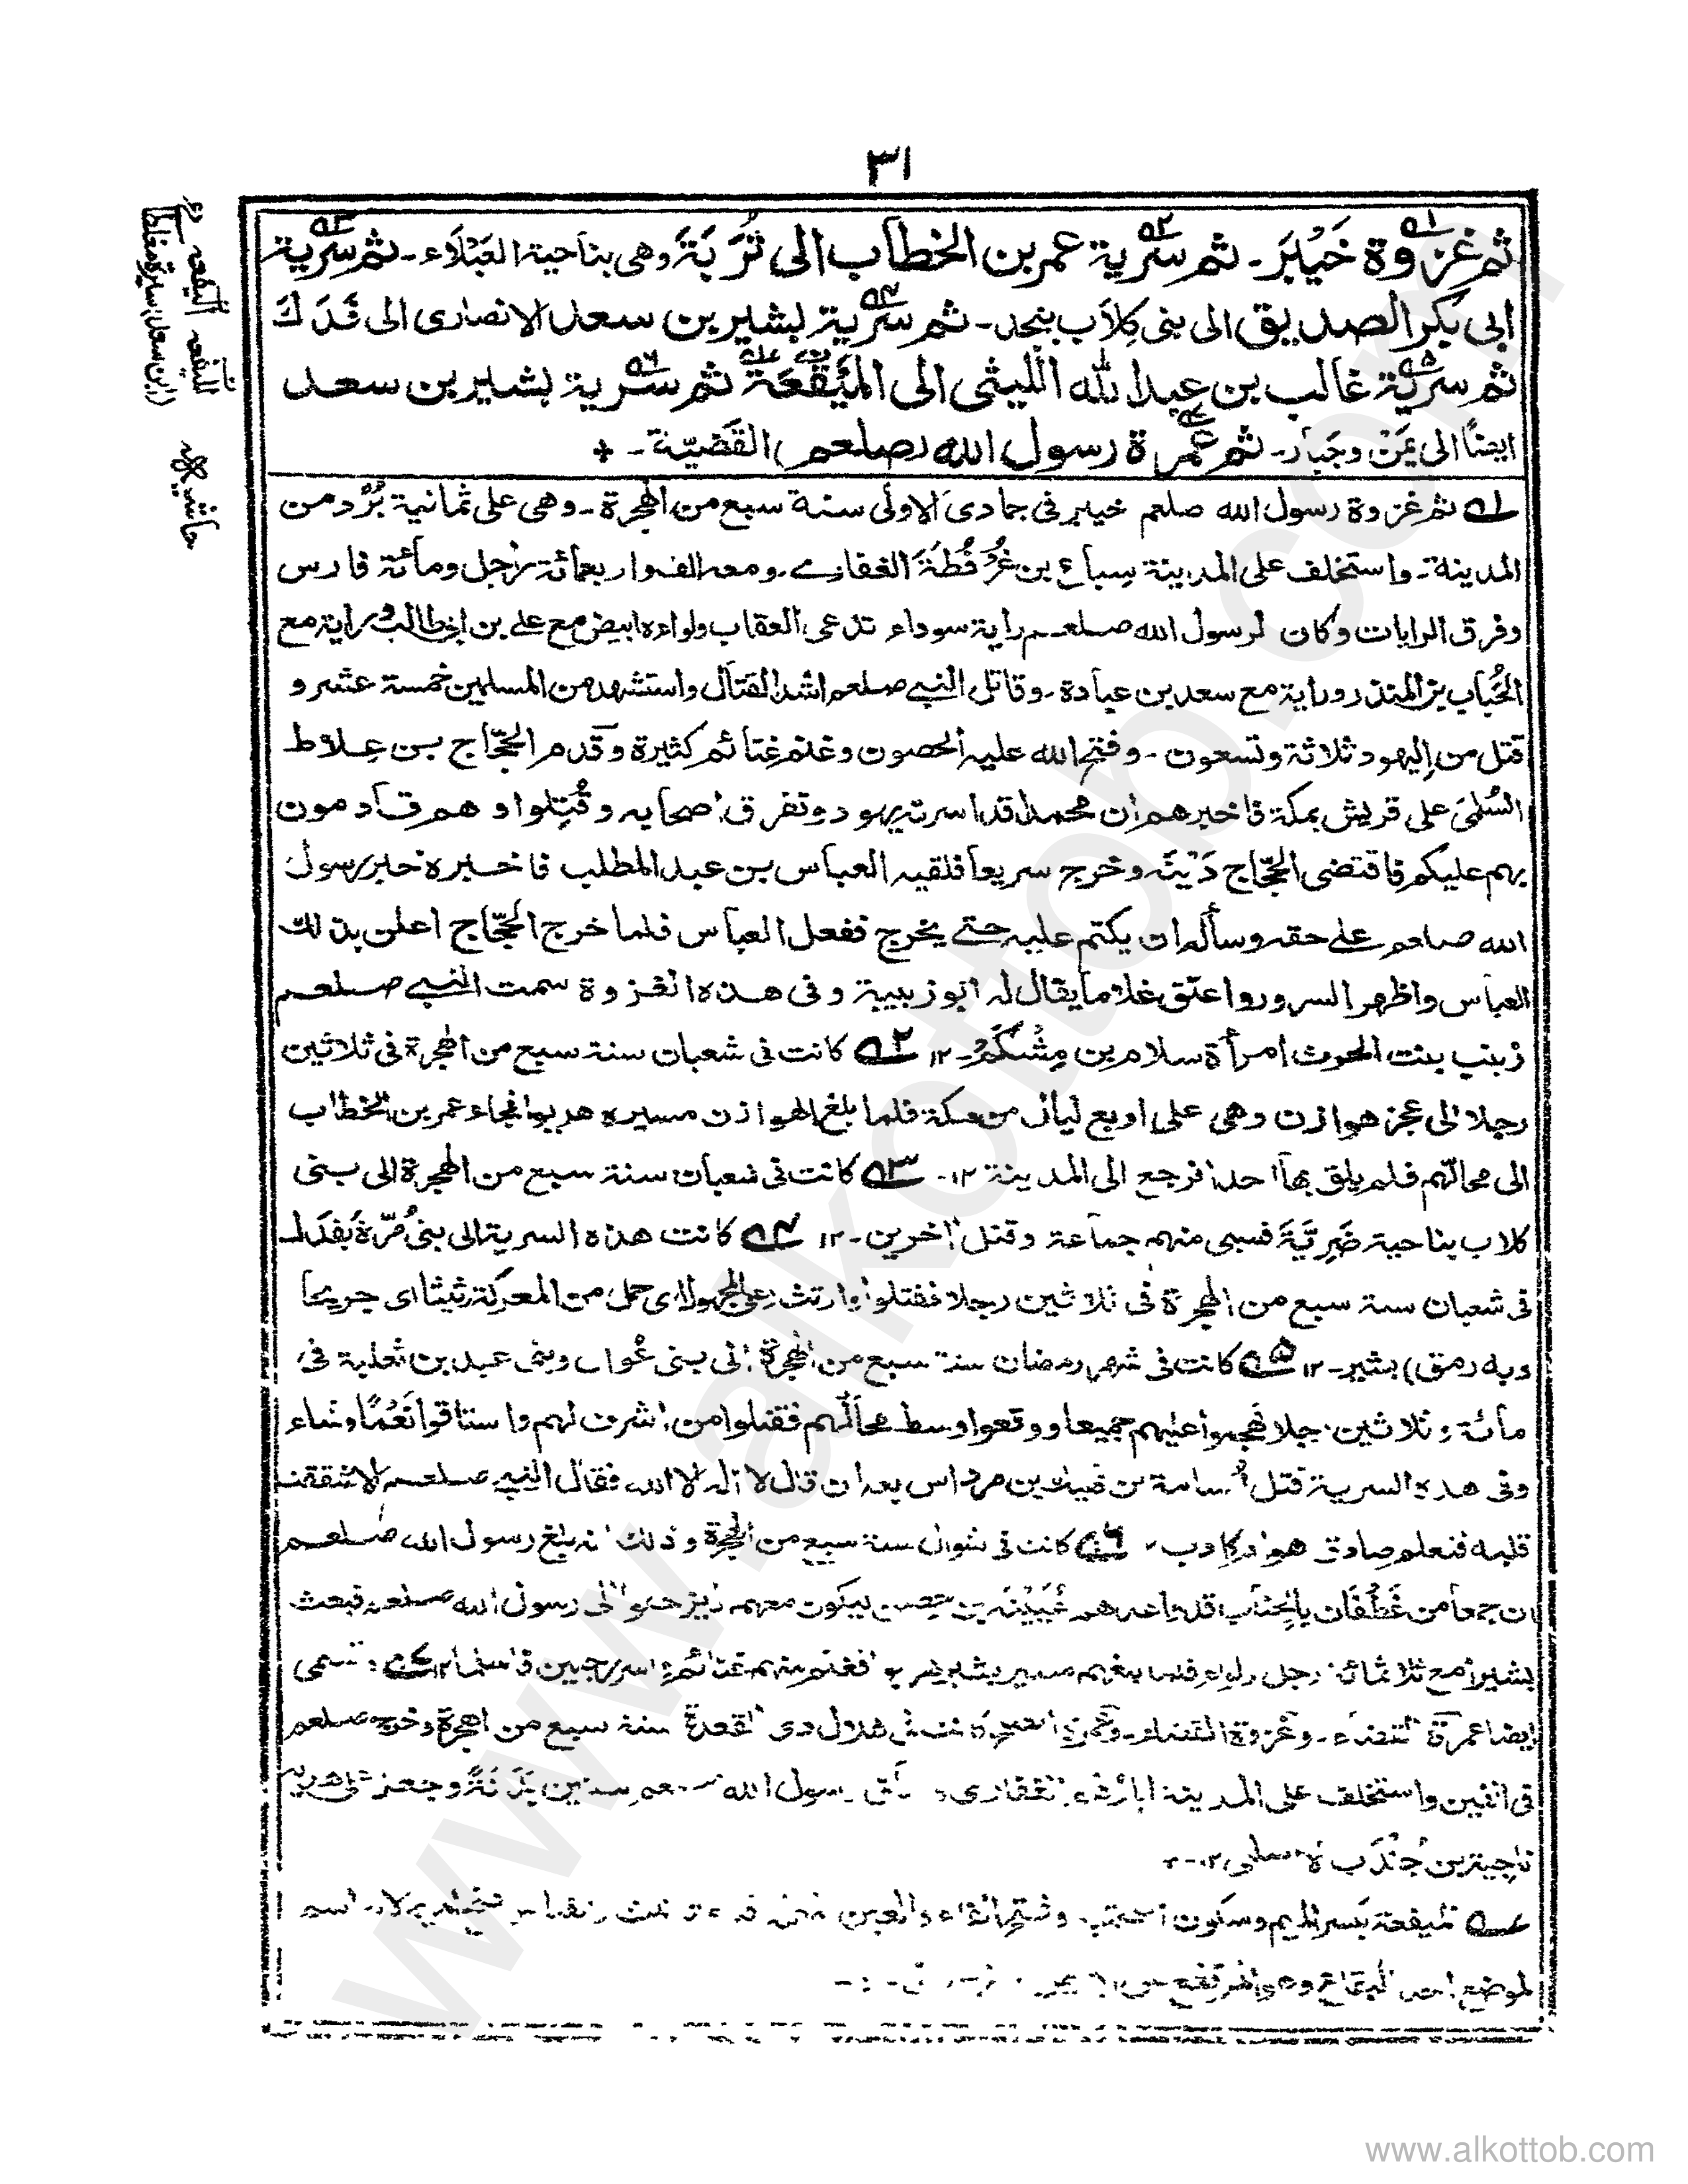 ٣١
ثم غزوة خَيْبَرَ۔ ثم سرية عمر بن الخطاب الى تُرَبَةَ وهى بناحية العَبْلَاء۔ ثم سرية
ابى بكر الصديق الى بنى كِلَاب بنجد۔ ثم سرية بشير بن سعد الانصارى الى فَدَك
ثم سرية غالب بن عبد الله الليثى الى المَيْفَعَة ثم سرية بشير بن سعد
ايضاً الى يَمَنْ وجَبَار۔ ثم عمرة رسول الله (صلعم) القَضيّة۔
١ ثم غزوة رسول الله صلعم خيبر فى جمادى الاولى سنة سبع من الهجرة۔ وهى على ثمانية بُرُد من
المدينة۔ واستخلف على المدينة سِباع بن عُرْفُطَةَ الغفارى۔ ومعه الف واربعمائة رجل ومائة فارس
وفرق الرايات وكان لرسول الله صلعم راية سوداء تدعى العقاب ولواءه ابيض مع على بن ابى طالب وراية مع
الحُباب بن المنذر وراية مع سعد بن عبادة۔ وقاتل النبى صلعم اشد القتال واستشهد من المسلمين خمسة عشر و
قتل من اليهود ثلاثة وتسعون۔ وفتح الله عليه الحصون وغنم غنائم كثيرة وقدم الحجّاج بن علاط
السُلمى على قريش بمكة فاخبرهم ان محمدا قد اسرته يهود وتفرق اصحابه وقُتِلوا وهم قادمون
بهم عليكم فاقتضى الحجّاج دَيْنَه وخرج سريعا فلقيه العباس بن عبد المطلب فاخبره خبر رسول
الله صلعم على حقه وسأله ان يكتم عليه حتى يخرج ففعل العباس فلما خرج الحجّاج اعلن بذلك
العباس واظهر السرور واعتق غلاما يقال له ابو زبيبة وفى هذه الغزوة سمت النبى صلعم
زينب بنت الحرث امرأة سلام بن مِشْكَمْ۔ ١٢ ٢ كانت فى شعبان سنة سبع من الهجرة فى ثلاثين
رجلا الى عجز هوازن وهى على اربع ليال من مكة فلما بلغ الهوازن مسيره هربوا فجاء عمر بن الخطاب
الى محالّهم فلم يلق بها احدا فرجع الى المدينة ١٢۔ ٣ كانت فى شعبان سنة سبع من الهجرة الى بنى
كلاب بناحية ضَرِيَّةَ فسبى منهم جماعة وقتل اخرين۔ ١٢ ٤ كانت هذه السرية الى بنى مُرّة بفدك
فى شعبان سنة سبع من الهجرة فى ثلاثين رجلا فقتلوا وارتث (على المجهول اى حمل من المعركة رثيثا اى جريحا
وبه رمق) بشير۔ ١٢ ٥ كانت فى شهر رمضان سنة سبع من الهجرة الى بنى عُوال وبنى عبد بن ثعلبة فى
مائة وثلاثين رجلا فهجموا عليهم جميعا ووقعوا وسط محالّهم فقتلوا من اشرف لهم واستاقوا نَعَمًا وشاء
وفى هذه السرية قتل اُسامة بن مرداس بعد ان قال لا اله الا الله فقال النبى صلعم الا شققت
قلبه فتعلم صادق هو ام كاذب ٦ كانت فى شوال سنة سبع من الهجرة وذلك انه بلغ رسول الله صلعم
ان جمعا من غَطْفَان بالجناب قد واعدهم عُيَيْنَة بن حصن ليكون معهم الى رسول الله صلعم فبعث
بشيرا مع ثلاثمائة رجل فلما بلغهم مسير بشير هربوا فغنم منهم غنائم واسر رجلين فاسلما ١٢ ٧ تسمى
ايضا عمرة القضاء۔ وغزوة القضاء۔ وعمرة كانت فى هلال ذى القعدة سنة سبع من الهجرة وخرج صلعم
فى الفين واستخلف على المدينة ابا رُهْم الغفارى رسول الله صلعم ستين بَدَنَةً وجعل على هديه
ناجية بن جُنْدَب الاسلمى ١٢
الميفعة بكسر الميم وسكون وفتح الفاء والعين اسم
لموضع من وهو المرتفع من
الميفعه
حاشيه
www.alkottob.com
www.alkottob.com